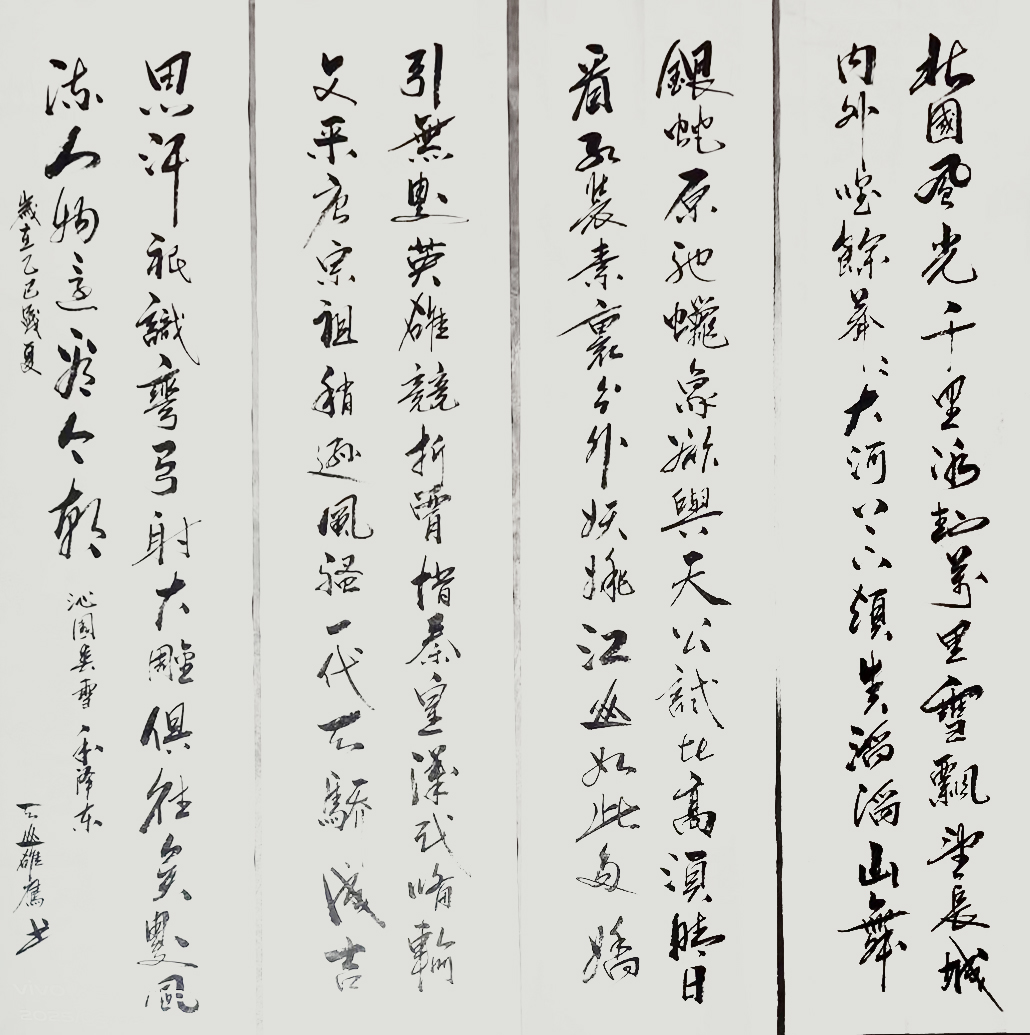 北國風光千里冰封萬里雪飄望長城
内外唯餘莽〻大河上下頓失滔滔山舞
銀蛇原馳蠟象欲與天公試比高須晴日
看紅裝素裹分外妖嬈江山如此多嬌
引無數英雄競折腰惜秦皇漢武略輸
文采唐宗祖稍遜風騷一代天驕成吉
思汗祇識彎弓射大雕俱往矣數風
流人物還看今朝
沁園春雪 毛泽东
歲在乙巳盛夏
天山雄鷹书